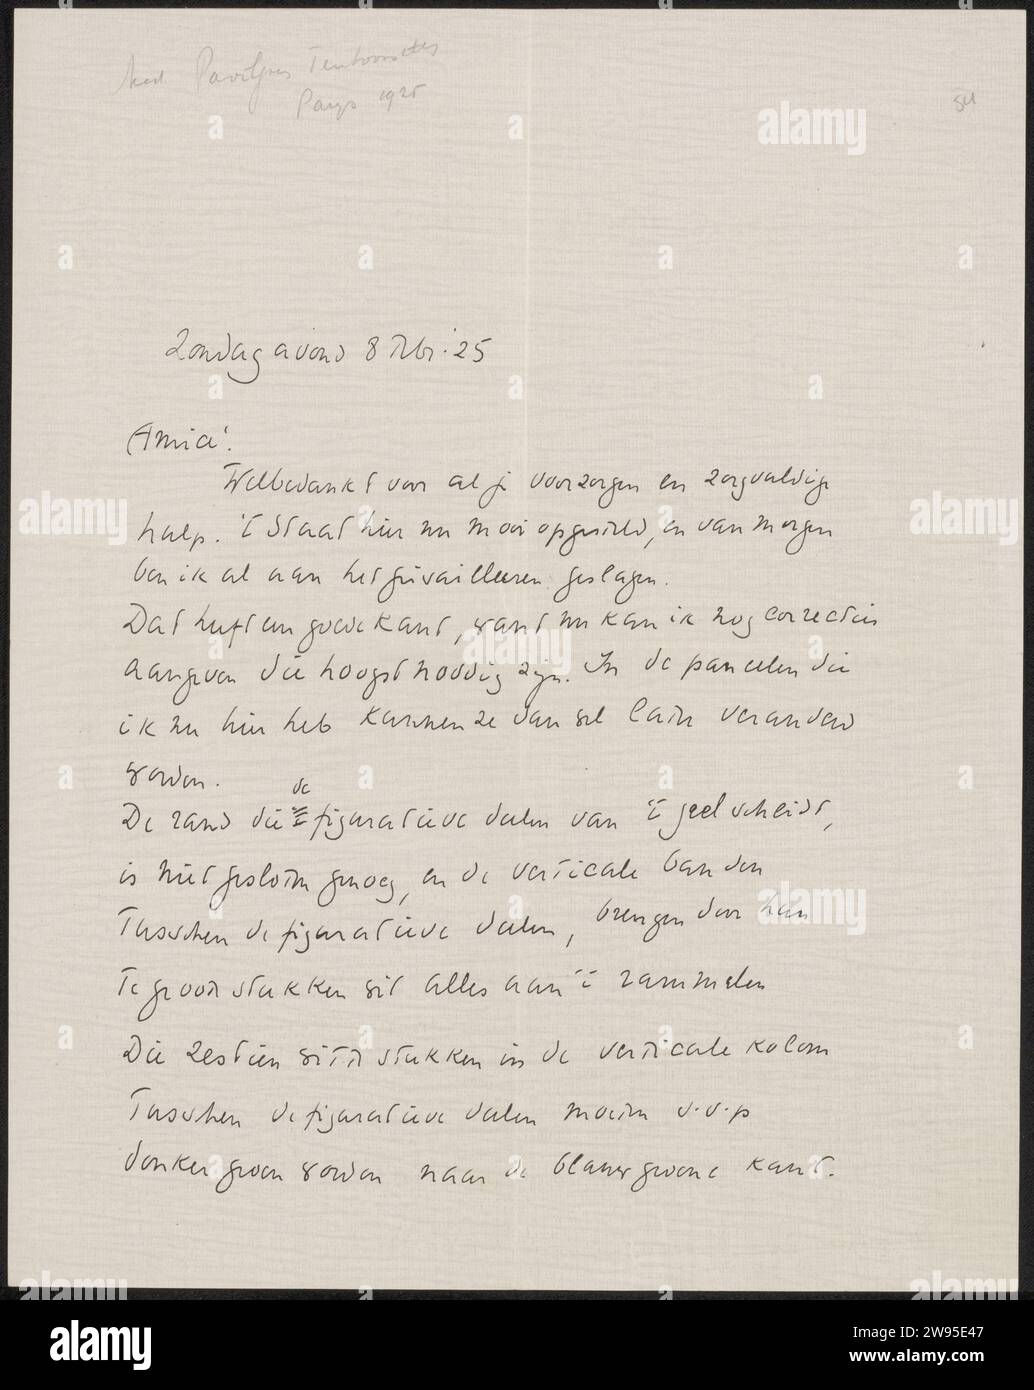 Ned. Paviljoen Tentoonst.
Parijs 1925
84
Zondag avond 8 Febr. 25
Amice!
Welbedankt voor al je voorzorgen en zorgvuldige
hulp. 't Staat hier nu mooi opgesteld, en van morgen
ben ik al aan het travailleeren geslagen.
Dat heeft een goede kant, want nu kan ik nog correcties
aangeven die hoogst noodig zijn. In de paneelen die
ik nu hier heb kunnen ze dan wel laten veranderd
worden.
de
De rand die figuratieve deelen van 't geel scheidt,
is niet gesloten genoeg, en de verticale banden
tusschen de figuratieve deelen, brengen door hun
te groote stukken wit alles aan 't rammelen
Die zestien witte stukken in de verticale kolom
tusschen de figuratieve deelen moeten s.v.p
donker groen worden naar de blauwgroene kant.
alamy
Image ID: 2W95E47
www.alamy.com